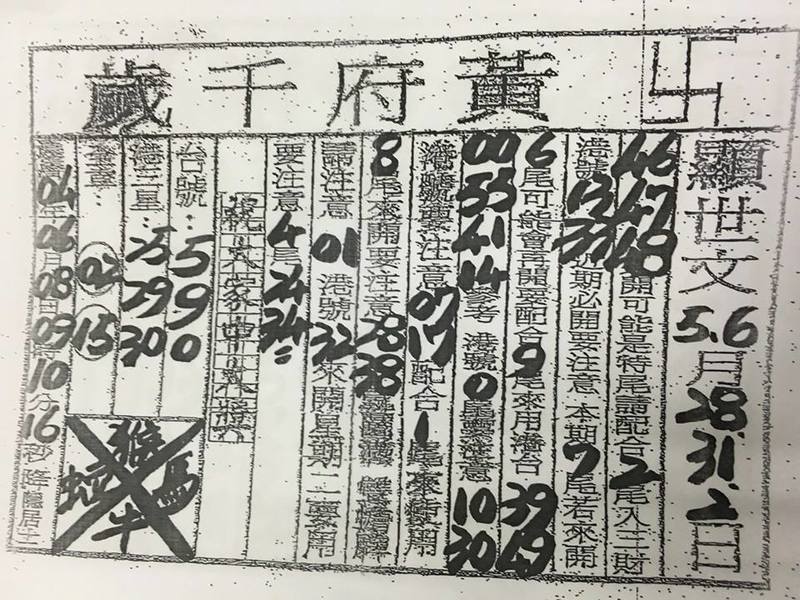 卍 黃府千歲
顯世文 5.6月28.31.2.日
46 47 48 開可能是特尾請配合2尾入三財
港號 13 37 近期必開要注意 本期7尾若來開
6尾可能會再開要配合9尾來用港台 39 49
00 55 41 14 參考 港號 0 注意 10 30
港號要注意 07 17 配合1尾來 用
8尾來開要注意 28 38
注意 01 港號 32 來開星期二 用
要注意 4尾 24 34
祝大家中大獎
台號: 5 9 0
港二星: 25 29 30
02 15
04年06月08日09時10分16秒降臨居士
猴
蛇 馬
牛